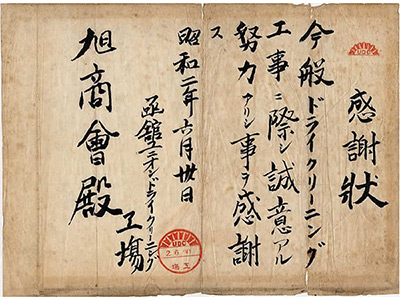 感謝狀
今般ドライクリーニング
工事ニ際シ誠意アル
努力アリシ事ヲ感謝
ス
昭和二年六月卅日
函館ユニオンドライクリーニング
工場
旭商會殿
UDC
UDC
工場